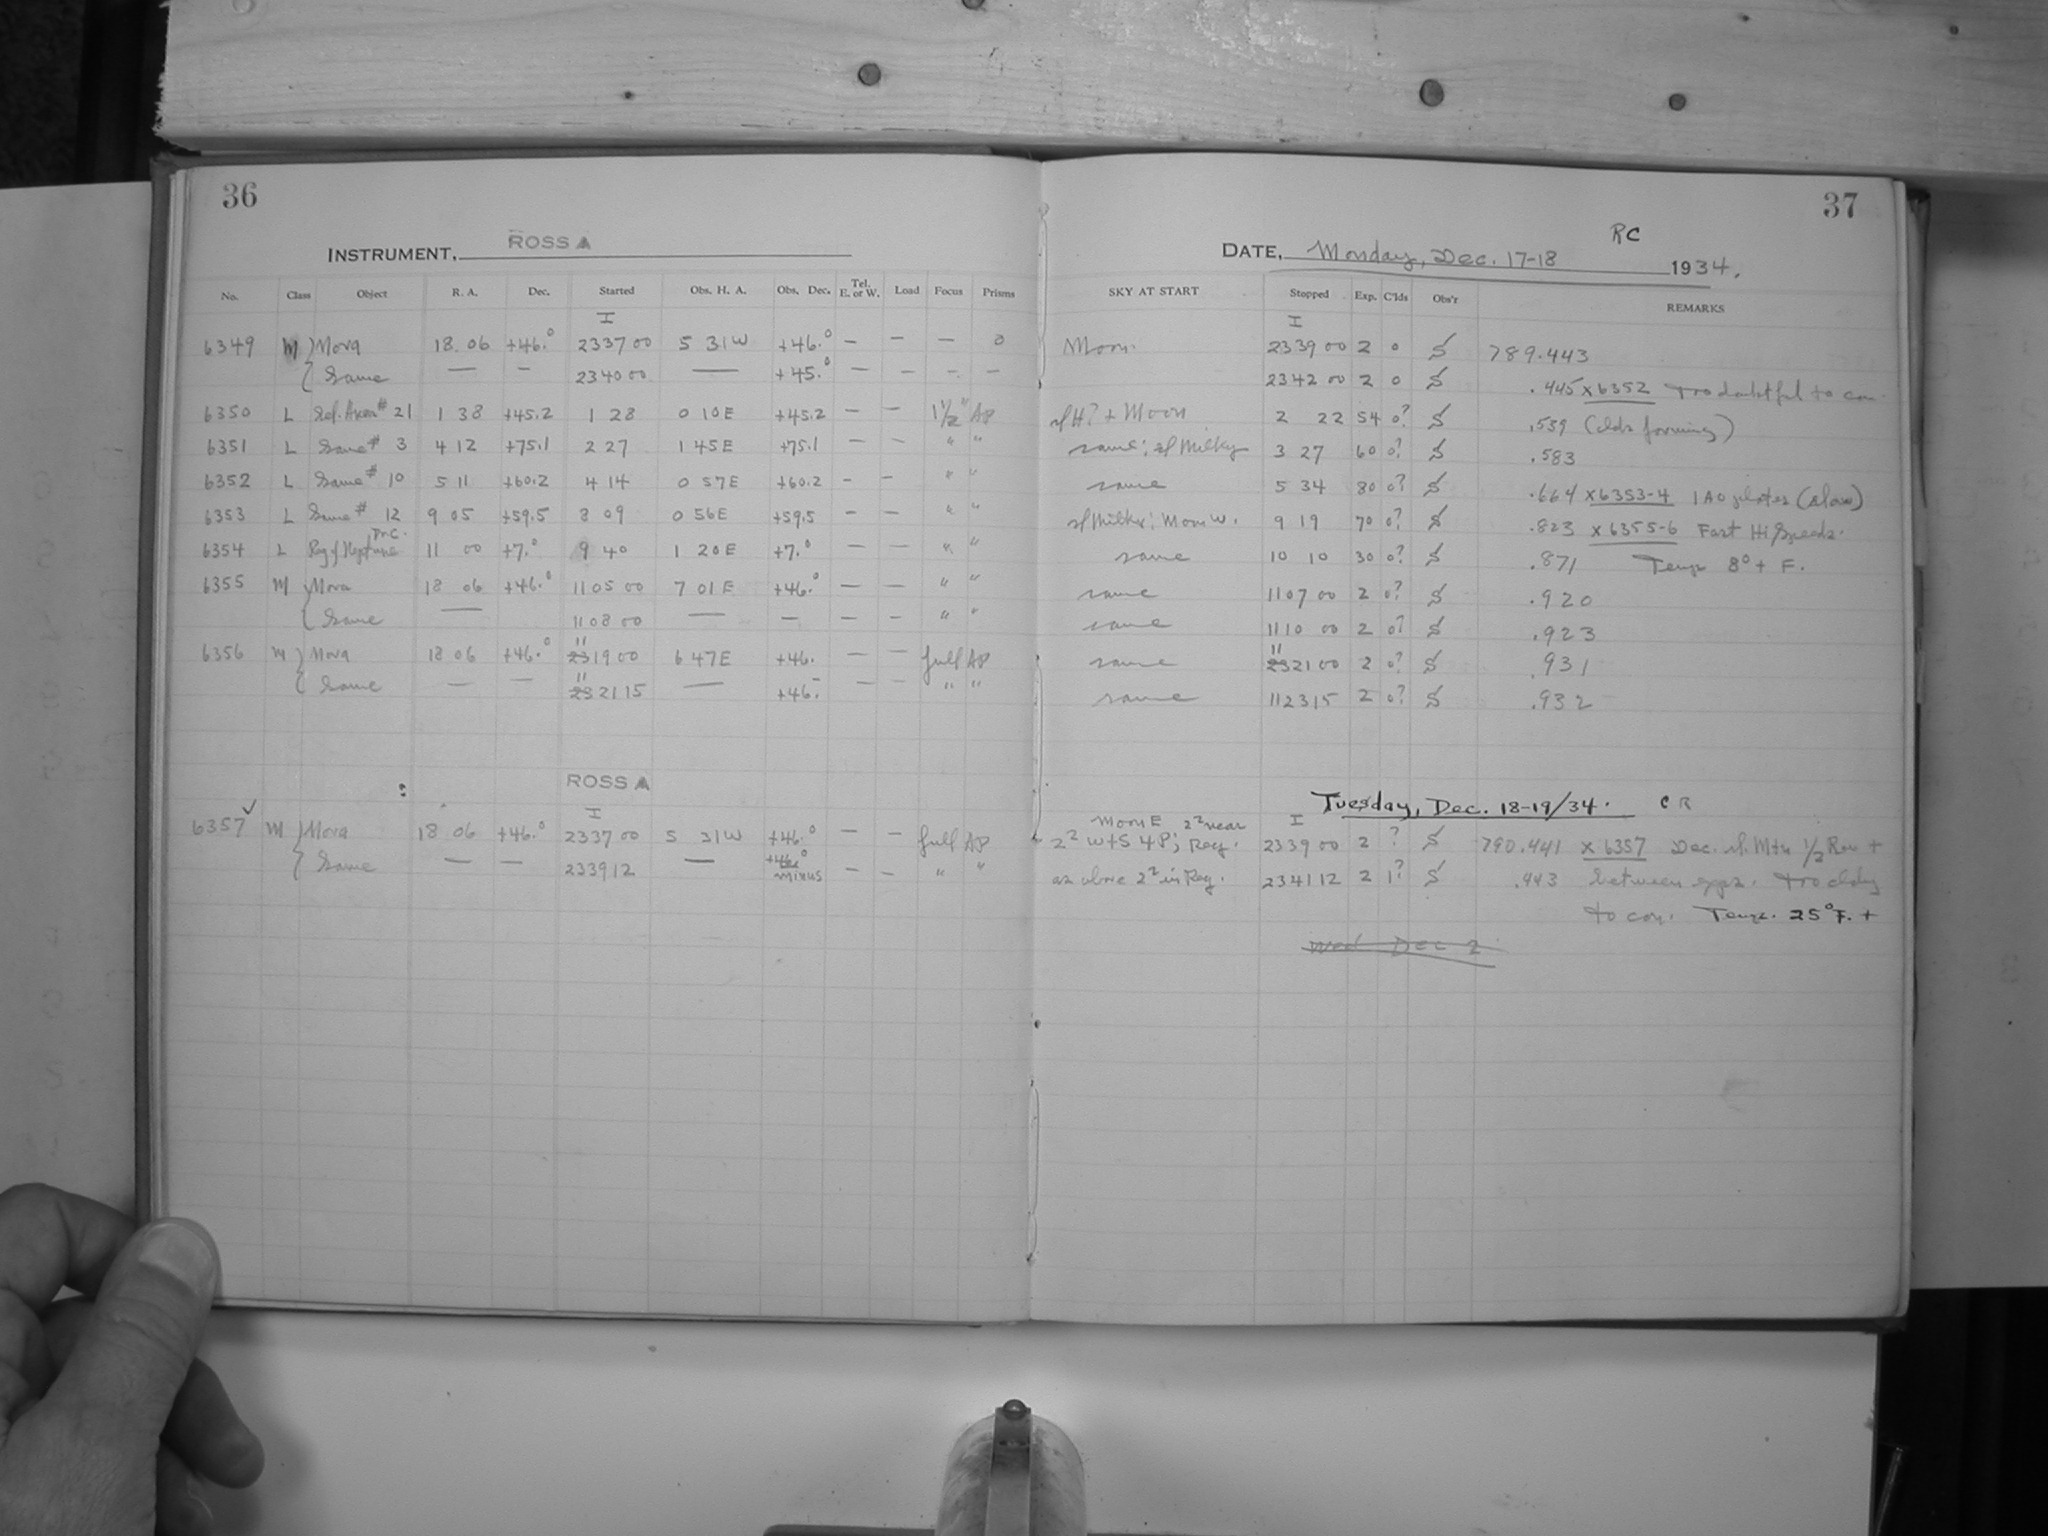 36
INSTRUMENT, ROSS A
No. Class Object R. A. Dec. Started Obs. H. A. Obs. Dec. Tel. E. or W. Load Focus Prisms
I
6349 M Nova 18 06 +46.° 2337 00 5 31W +46.° — — — 0
Same — — 2340 00 — +45.° — — — —
6350 L Sel. Area # 21 1 38 +45.2 1 28 0 10E +45.2 — — 1 1/2" AP
6351 L Same # 3 4 12 +75.1 2 27 1 45E +75.1 — — " "
6352 L Same # 10 5 11 +60.2 4 14 0 57E +60.2 — — " "
6353 L Same # 12 9 05 +59.5 8 09 0 56E +59.5 — — " "
6354 L Reg of Neptune Pr.C. 11 00 +7.° 9 40 1 20E +7.° — — " "
6355 M Nova 18 06 +46.° 1105 00 7 01E +46.° — — " "
Same — 1108 00 — — — — " "
6356 M Nova 18 06 +46.° 23 11 19 00 6 47E +46. — — full AP
Same — — 23 11 21 15 — +46.- — — " "
ROSS A
I
6357 ✓ M Nova 18 06 +46.° 2337 00 5 31W +46.° — — full AP
Same — — 2339 12 — +46.° minus — — " "
37
RC
DATE, Monday, Dec. 17-18 1934.
SKY AT START Stopped Exp. C'lds Obs'r REMARKS
I
Moon. 2339 00 2 0 S 789.443
2342 00 2 0 S .445 x 6352 Too doubtful to con.
sl H? + Moon 2 22 54 0? S .539 (clds forming)
same; sl Milky 3 27 60 0? S .583
same 5 34 80 0? S .664 x 6353-4 IAO plates (slow)
sl Milky; Moon W. 9 19 70 0? S .823 x 6355-6 Fast Hi Speeds.
same 10 10 30 0? S .871 Temp 8° + F.
same 1107 00 2 0? S .920
same 1110 00 2 0? S .923
same 23 11 21 00 2 0? S .931
same 1123 15 2 0? S .932
Tuesday, Dec. 18-19/34. C R
Moon E 2² near I
2² W+S 4P; Reg. 2339 00 2 ? S 790.441 x 6357 Dec. sl. M+n 1/2 Rev +
as above 2² in Reg. 2341 12 2 1? S .443 between exps. Too cldy
to con. Temp. 25° F. +
Wed Dec 2